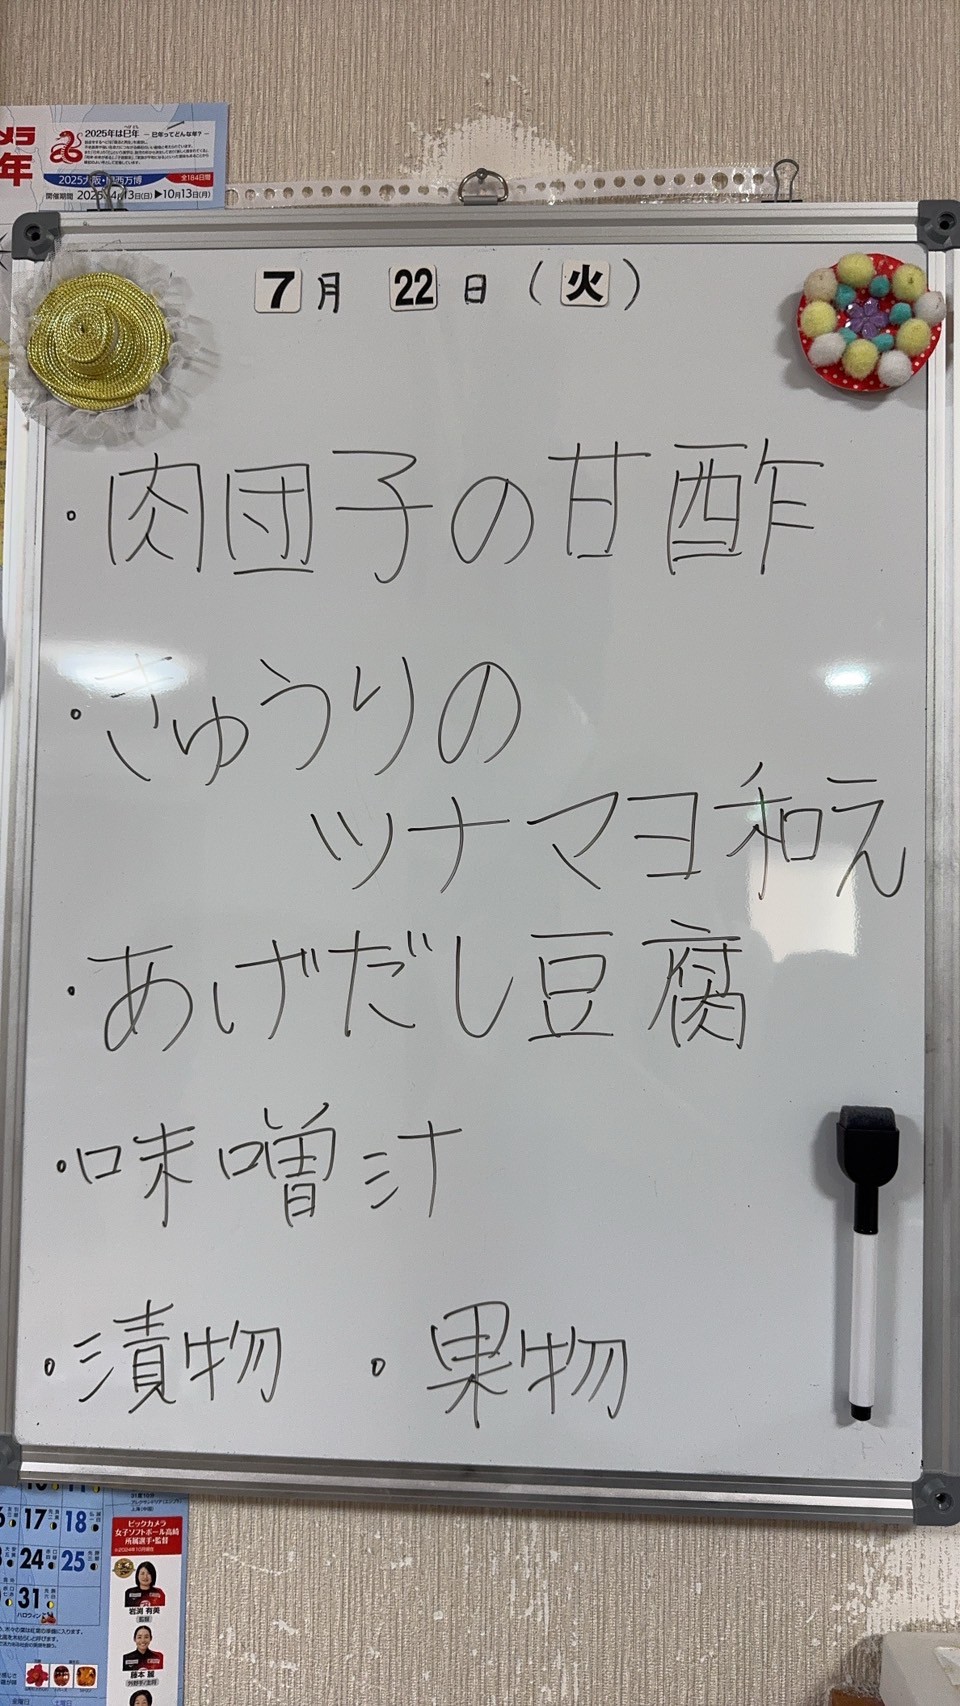 メラ
年
2025年は巳年 ー 巳年ってどんな年? ー
2025大阪・関西万博
全184日間
開催期間 2025年4月13日(日)▶10月13日(月)
7月 22日(火)
・肉団子の甘酢
・きゅうりの
ツナマヨ和え
・あげだし豆腐
・味噌汁
・漬物 ・果物
17 18
24 25
31
ハロウィン
ビックカメラ
女子ソフトボール高崎
所属選手・監督
岩渕 有美
監督
藤本 麗
金曜日 土曜日